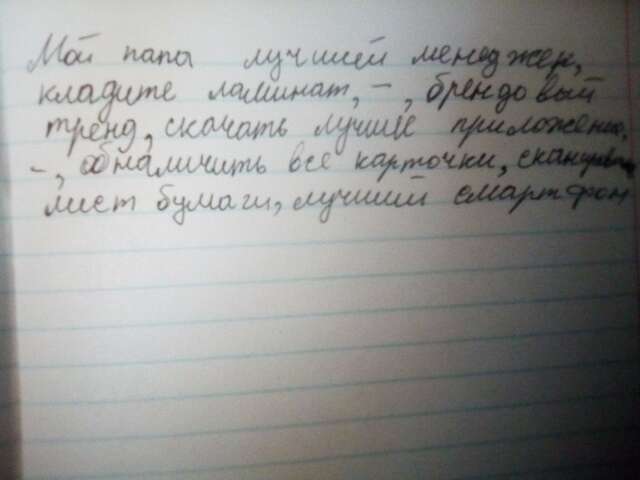 Мой папа лучший менеджен,
кладите ламинат, - , брендовый
тренд, скачать лучшие приложения,
- , обналичить все карточки, сканировать
лист бумаги, лучший смартфон